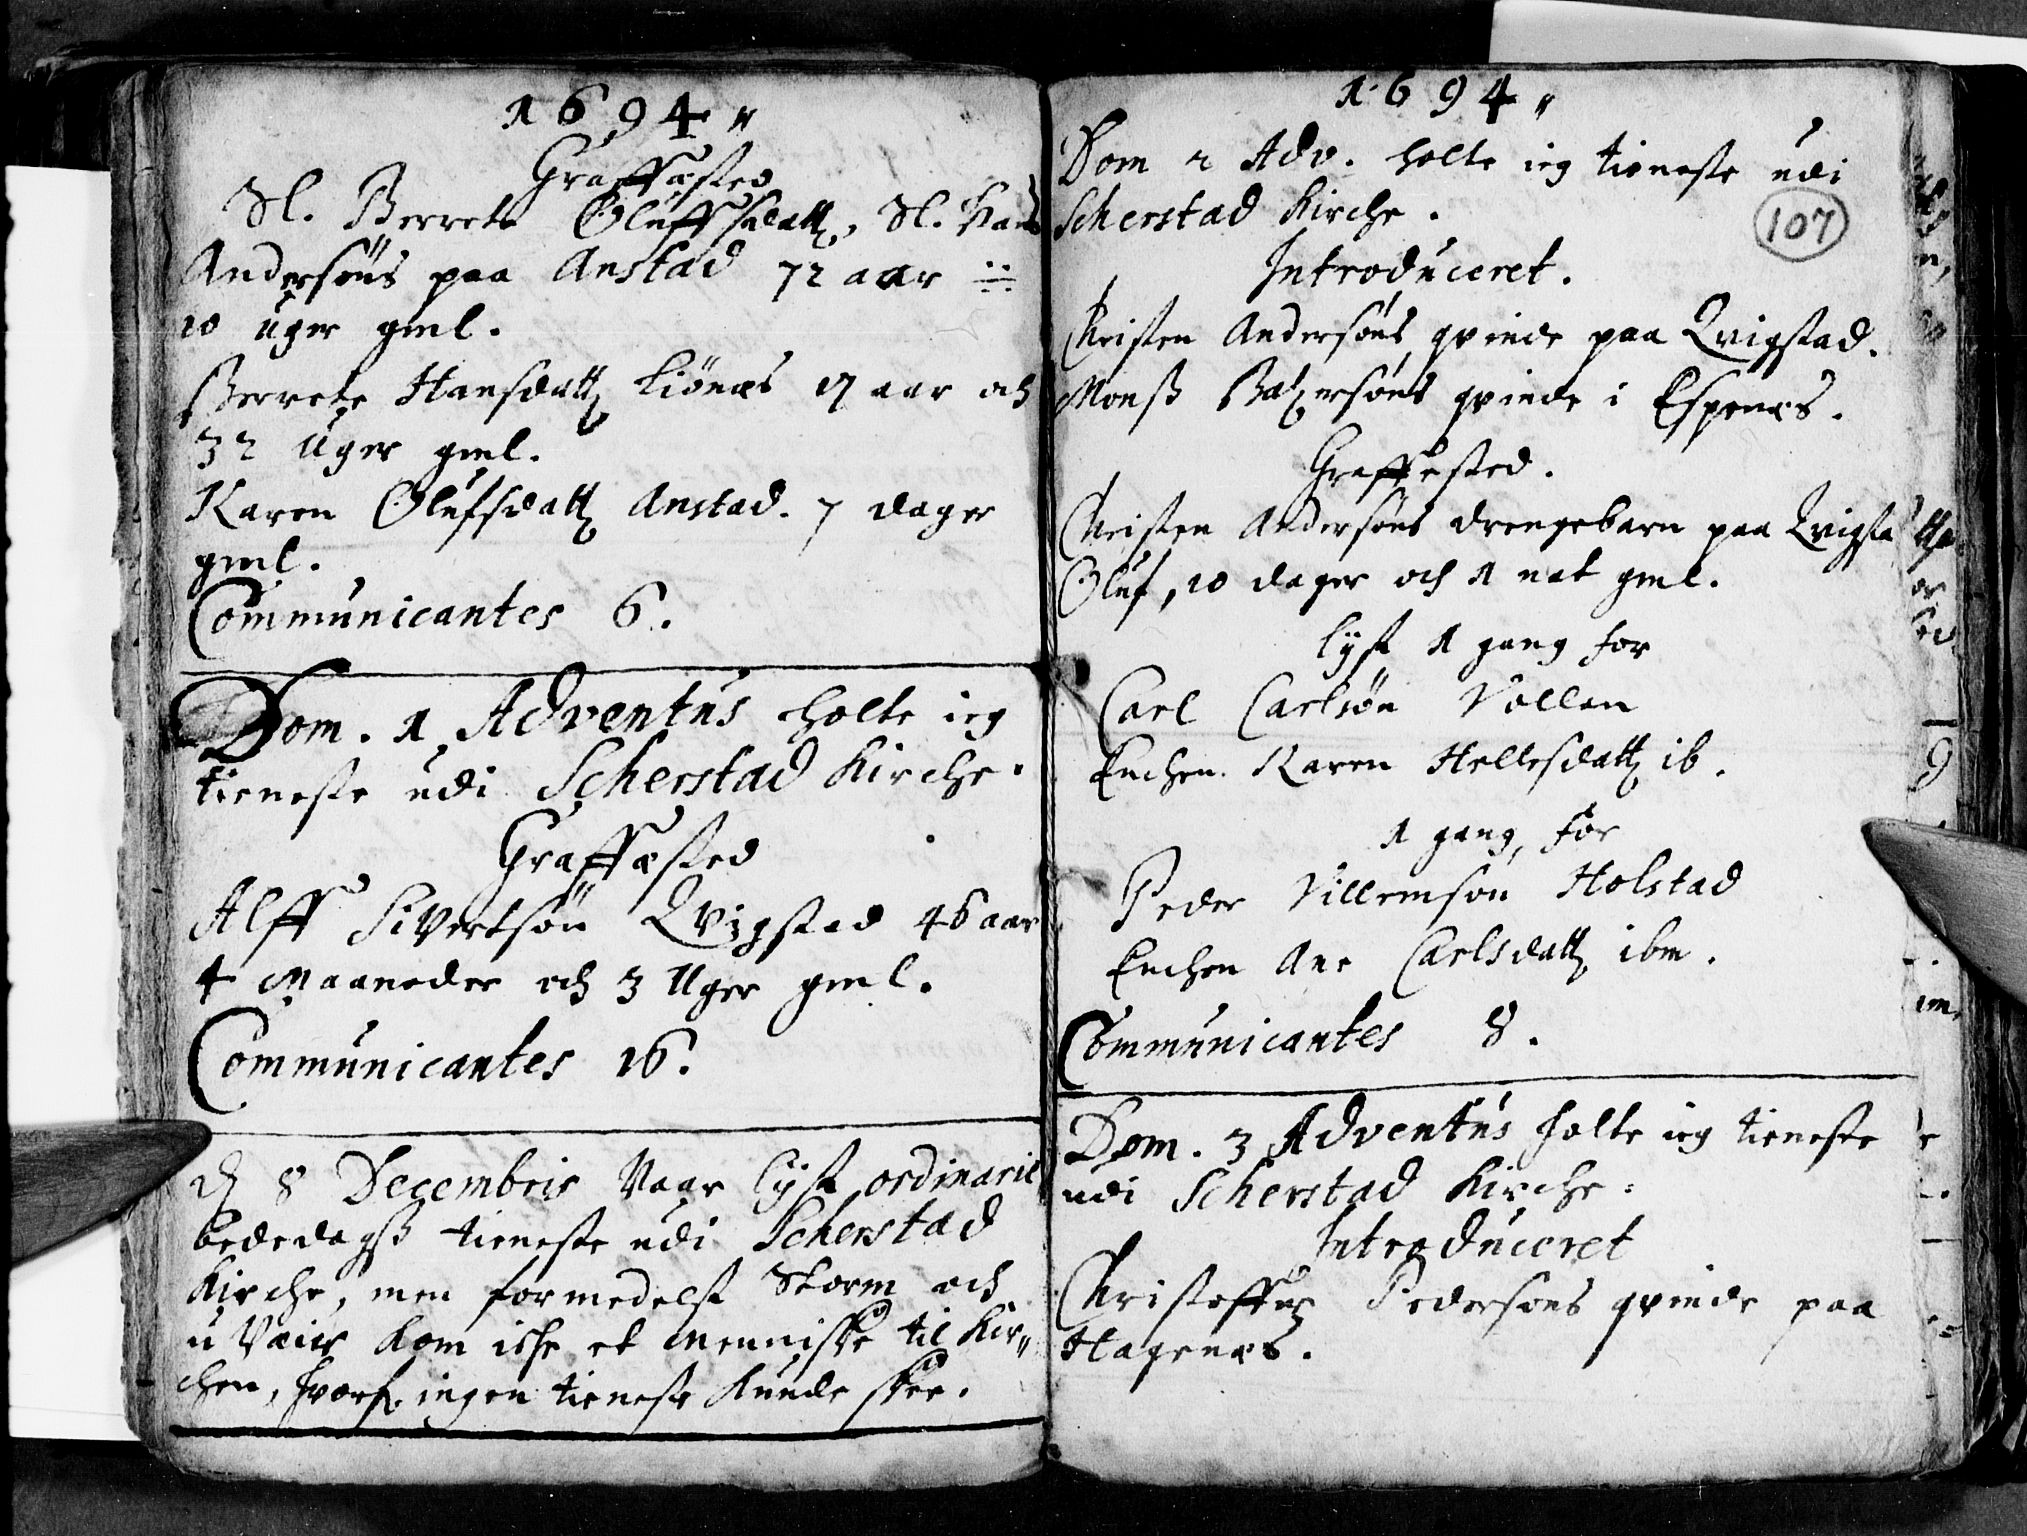 1694 „
Graffæsted
Sl. Berrete Oluffsdatt, Sl. Hans
Andersøns paa Anstad 72 aar
10 uger gml.
Berrete Hansdatt Liønæs 17 aar och
32 Uger gml.
Karen Olufsdatt Anstad. 7 dager
gml.
Communicantes 6.
Dom. 1 Adventus holte ieg
tieneste udi Scherstad Kirche.
Graffæsted
Alff Sivertsøn Qvigsted 46 aar
4 Maaneder och 3 Uger gml.
Communicantes 16.
d 8 Decembris Vaar lyst ordinarie
bededagsß tieneste udi Scherstad
Kirche, men formedelst Storm och
u Væir kom iche et Menniske til Kir„
chen, hvorf. ingen tieneste kunde skee.
1694 „
Dom 2 Adv. holte ieg tieneste udi
Scherstad Kirche.
107
Introduceret.
Christen Andersøns qvinde paa Qvigstad.
Monß Baltzersøns qvinde i Espenæs.
Graffested.
Christen Andersøns drengebarn paa Qvigsta
Oluf, 10 dager och 1 nat gml.
lyst 1 gang for
Carl Carlsøn Vollen
Enchen Karen Hellesdatt ib.
1 gang for
Peder Villemson Holstad
Enchen Ane Carlsdatt ibm.
Communicantes 8.
Dom. 3 Adventus holte ieg tieneste
udi Scherstad Kirche:
Introduceret
Christoffer Pedersøns qvinde paa
Hagenæs.